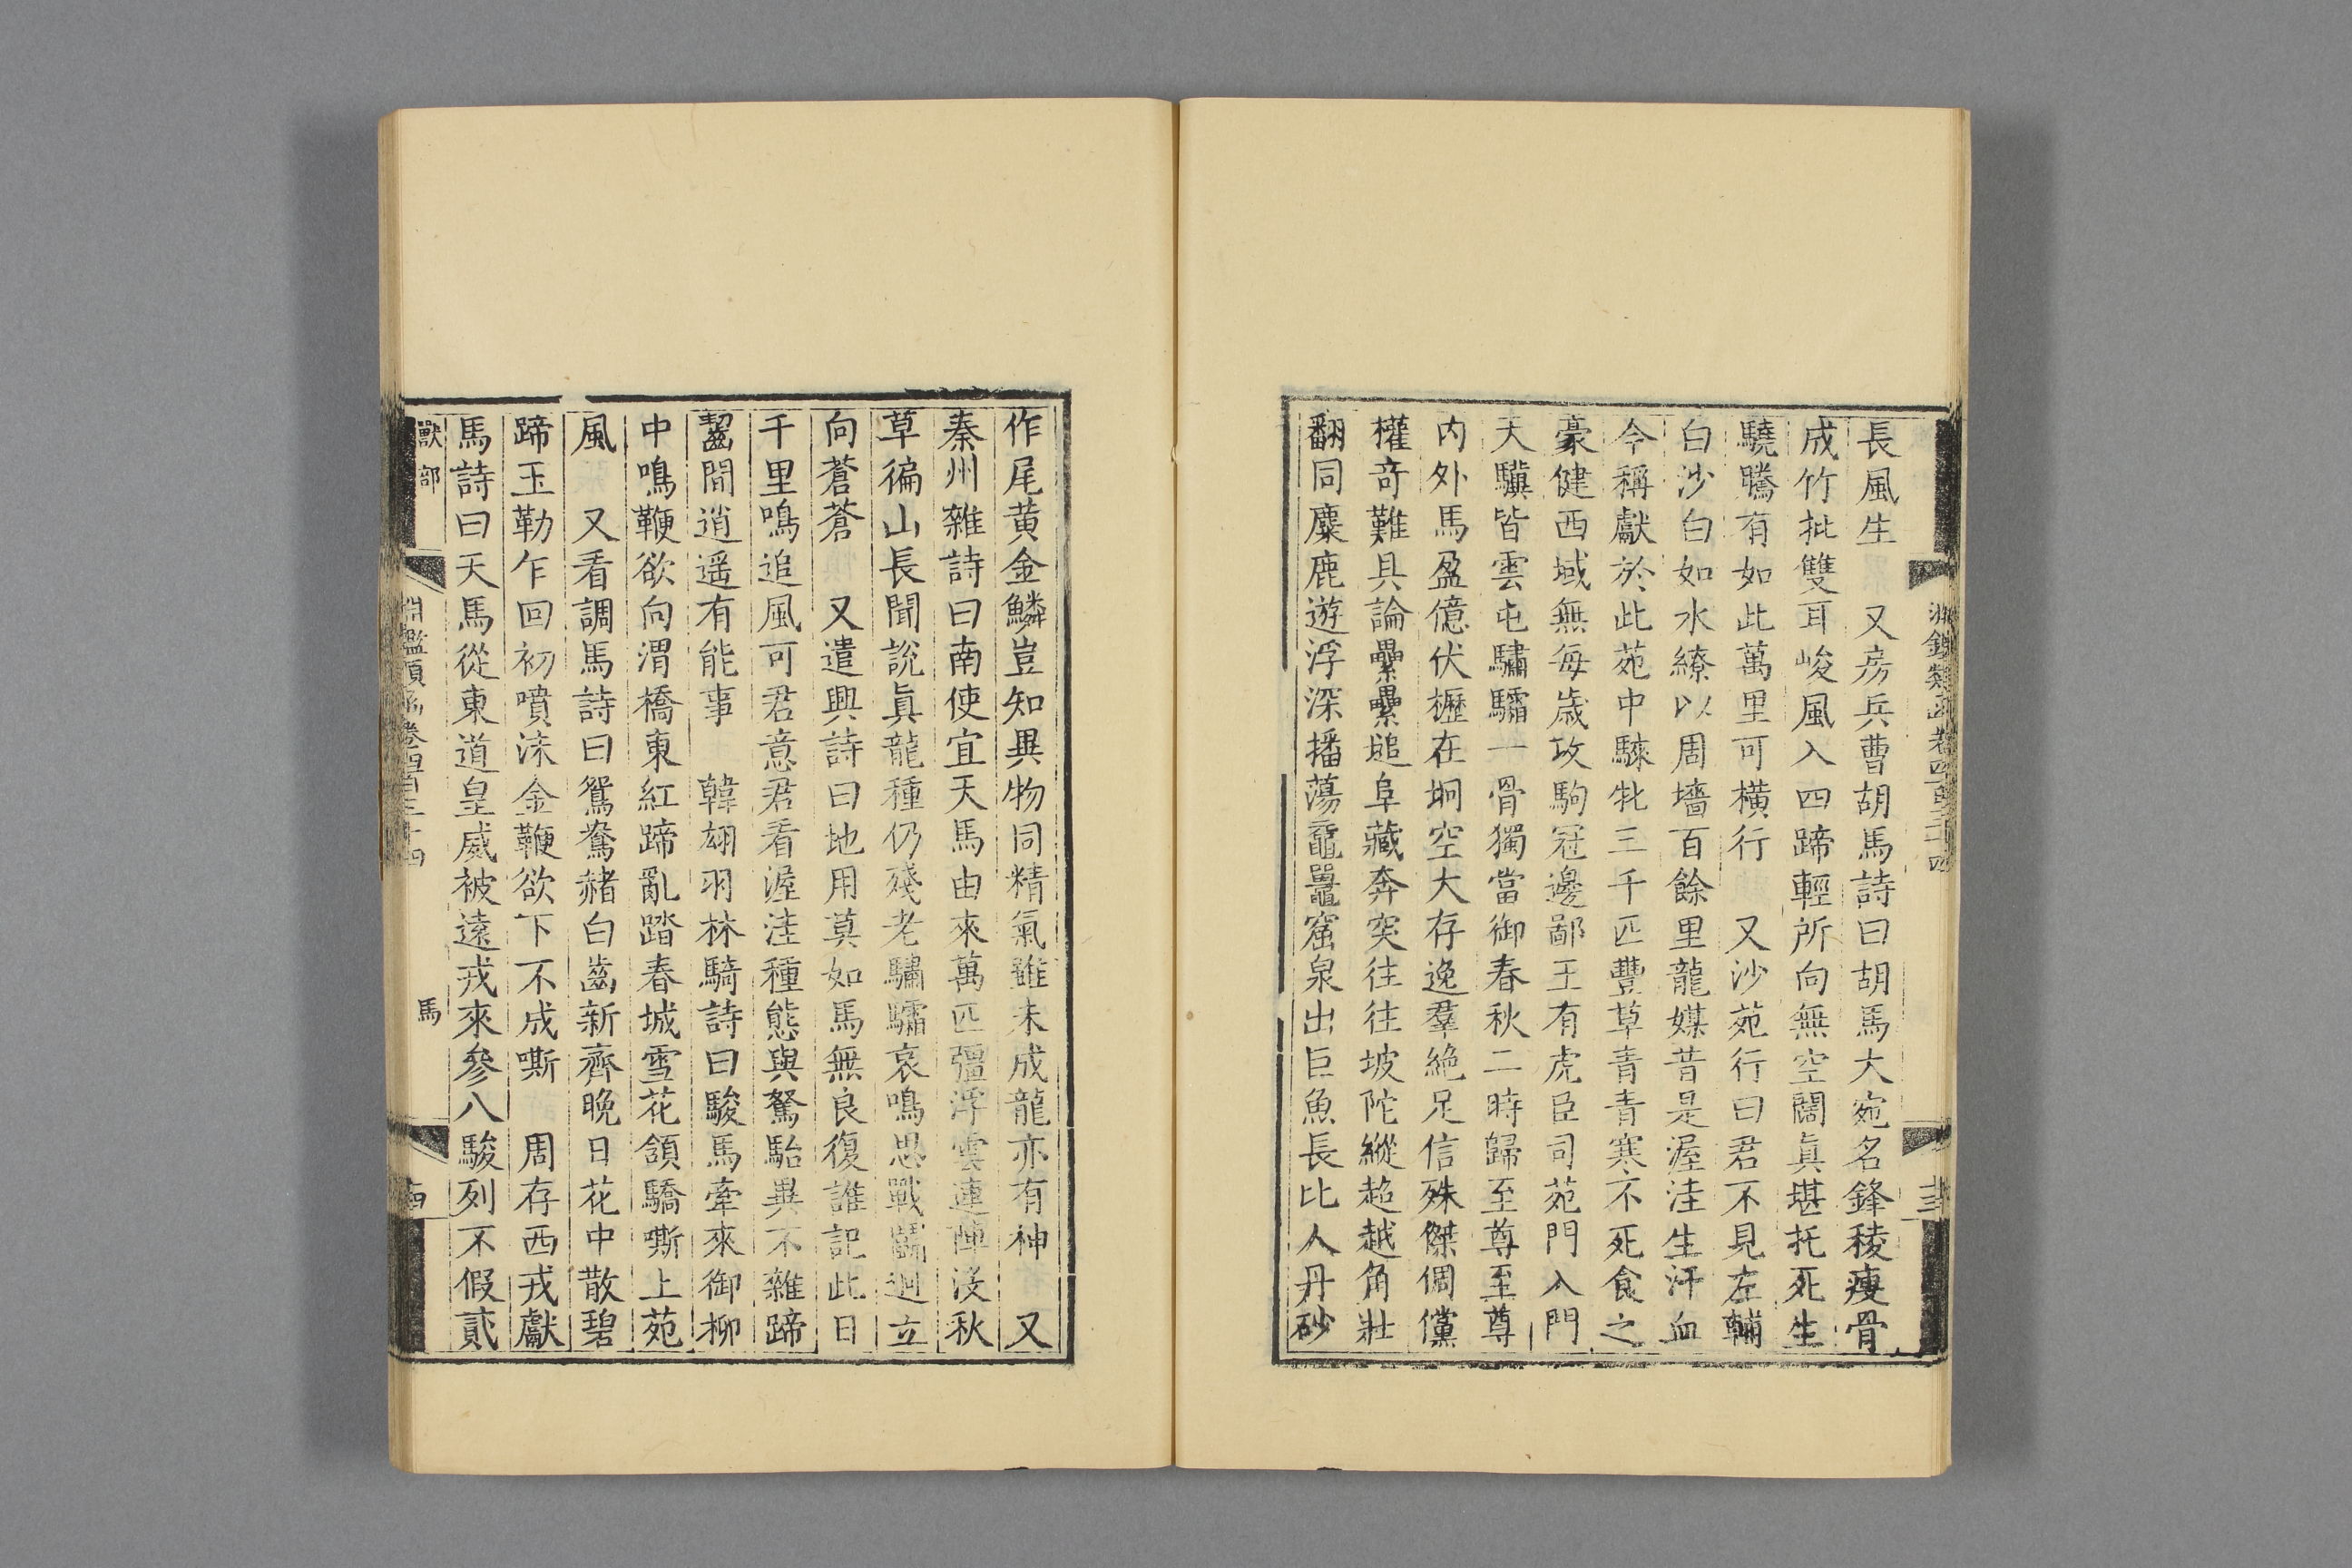 淵鑑類函卷四百三十四
長風生 又房兵曹胡馬詩曰胡馬大宛名鋒稜瘦骨
成竹批雙耳峻風入四蹄輕所向無空闊眞堪托死生
驍騰有如此萬里可橫行 又沙苑行曰君不見左輔
白沙白如水繚以周墻百餘里龍媒昔是渥洼生汗血
今稱獻於此苑中騋牝三千匹豐草青青寒不死食之
豪健西域無每歲攻駒冠邊鄙王有虎臣司苑門入門
天驥皆雲屯驌驦一骨獨當御春秋二時歸至尊至尊
内外馬盈億伏櫪在坰空大存逸羣絶足信殊傑倜儻
權奇難具論纍纍塠阜藏奔突往往坡陀縱超越角壯
翻同麋鹿遊浮深播蕩黿鼉窟泉出巨魚長比人丹砂
作尾黄金鱗豈知異物同精氣雖未成龍亦有神 又
秦州雜詩曰南使宜天馬由來萬匹彊浮雲連陣没秋
草徧山長聞說眞龍種仍殘老驌驦哀鳴思戰鬭迥立
向蒼蒼 又遣興詩曰地用莫如馬無良復誰記此日
千里鳴追風可君意君看渥洼種態與駑駘異不雜蹄
齧間逍遥有能事 韓翃羽林騎詩曰駿馬牽來御柳
中鳴鞭欲向渭橋東紅蹄亂踏春城雪花頷驕嘶上苑
風 又看調馬詩曰鴛鴦赭白齒新齊晚日花中散碧
蹄玉勒乍回初噴沫金鞭欲下不成嘶 周存西戎獻
馬詩曰天馬從東道皇威被遠戎來參八駿列不假貳
獸部 淵鑑類函卷四百三十四 馬 十四